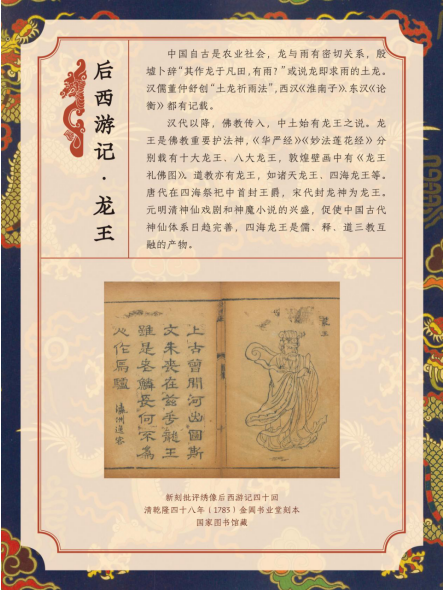 后西游记·龙王
中国自古是农业社会，龙与雨有密切关系，殷
墟卜辞“其作龙于凡田，有雨？”或说龙即求雨的土龙。
汉儒董仲舒创“土龙祈雨法”，西汉《淮南子》、东汉《论
衡》都有记载。
汉代以降，佛教传入，中土始有龙王之说。龙
王是佛教重要护法神，《华严经》《妙法莲花经》分
别载有十大龙王、八大龙王，敦煌壁画中有《龙王
礼佛图》。道教亦有龙王，如诸天龙王、四海龙王等。
唐代在四海祭祀中首封王爵，宋代封龙神为龙王。
元明清神仙戏剧和神魔小说的兴盛，促使中国古代
神仙体系日趋完善，四海龙王是儒、释、道三教互
融的产物。
龍王
上古曾聞河出圖斯
文未喪在茲乎龍王
雖是老鱗長何不爲
心作馬驢
瀛洲逸客
新刻批评绣像后西游记四十回
清乾隆四十八年（1783）金阊书业堂刻本
国家图书馆藏